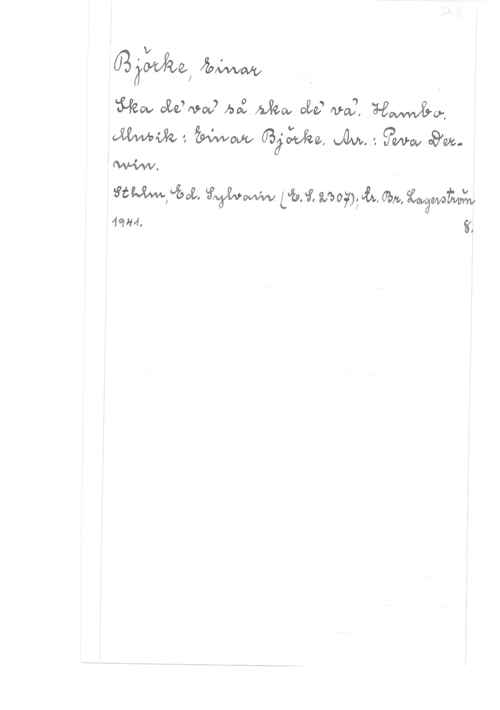 Björke, Einar
Ska de' va' så ska de' va'. Hambo.
Musik : Einar Björke. Arr. : Peva Der-
win.
Sthlm, Ed. Sylvain (E.S. 2307); tr. Br. Lagerström
1941. 8.